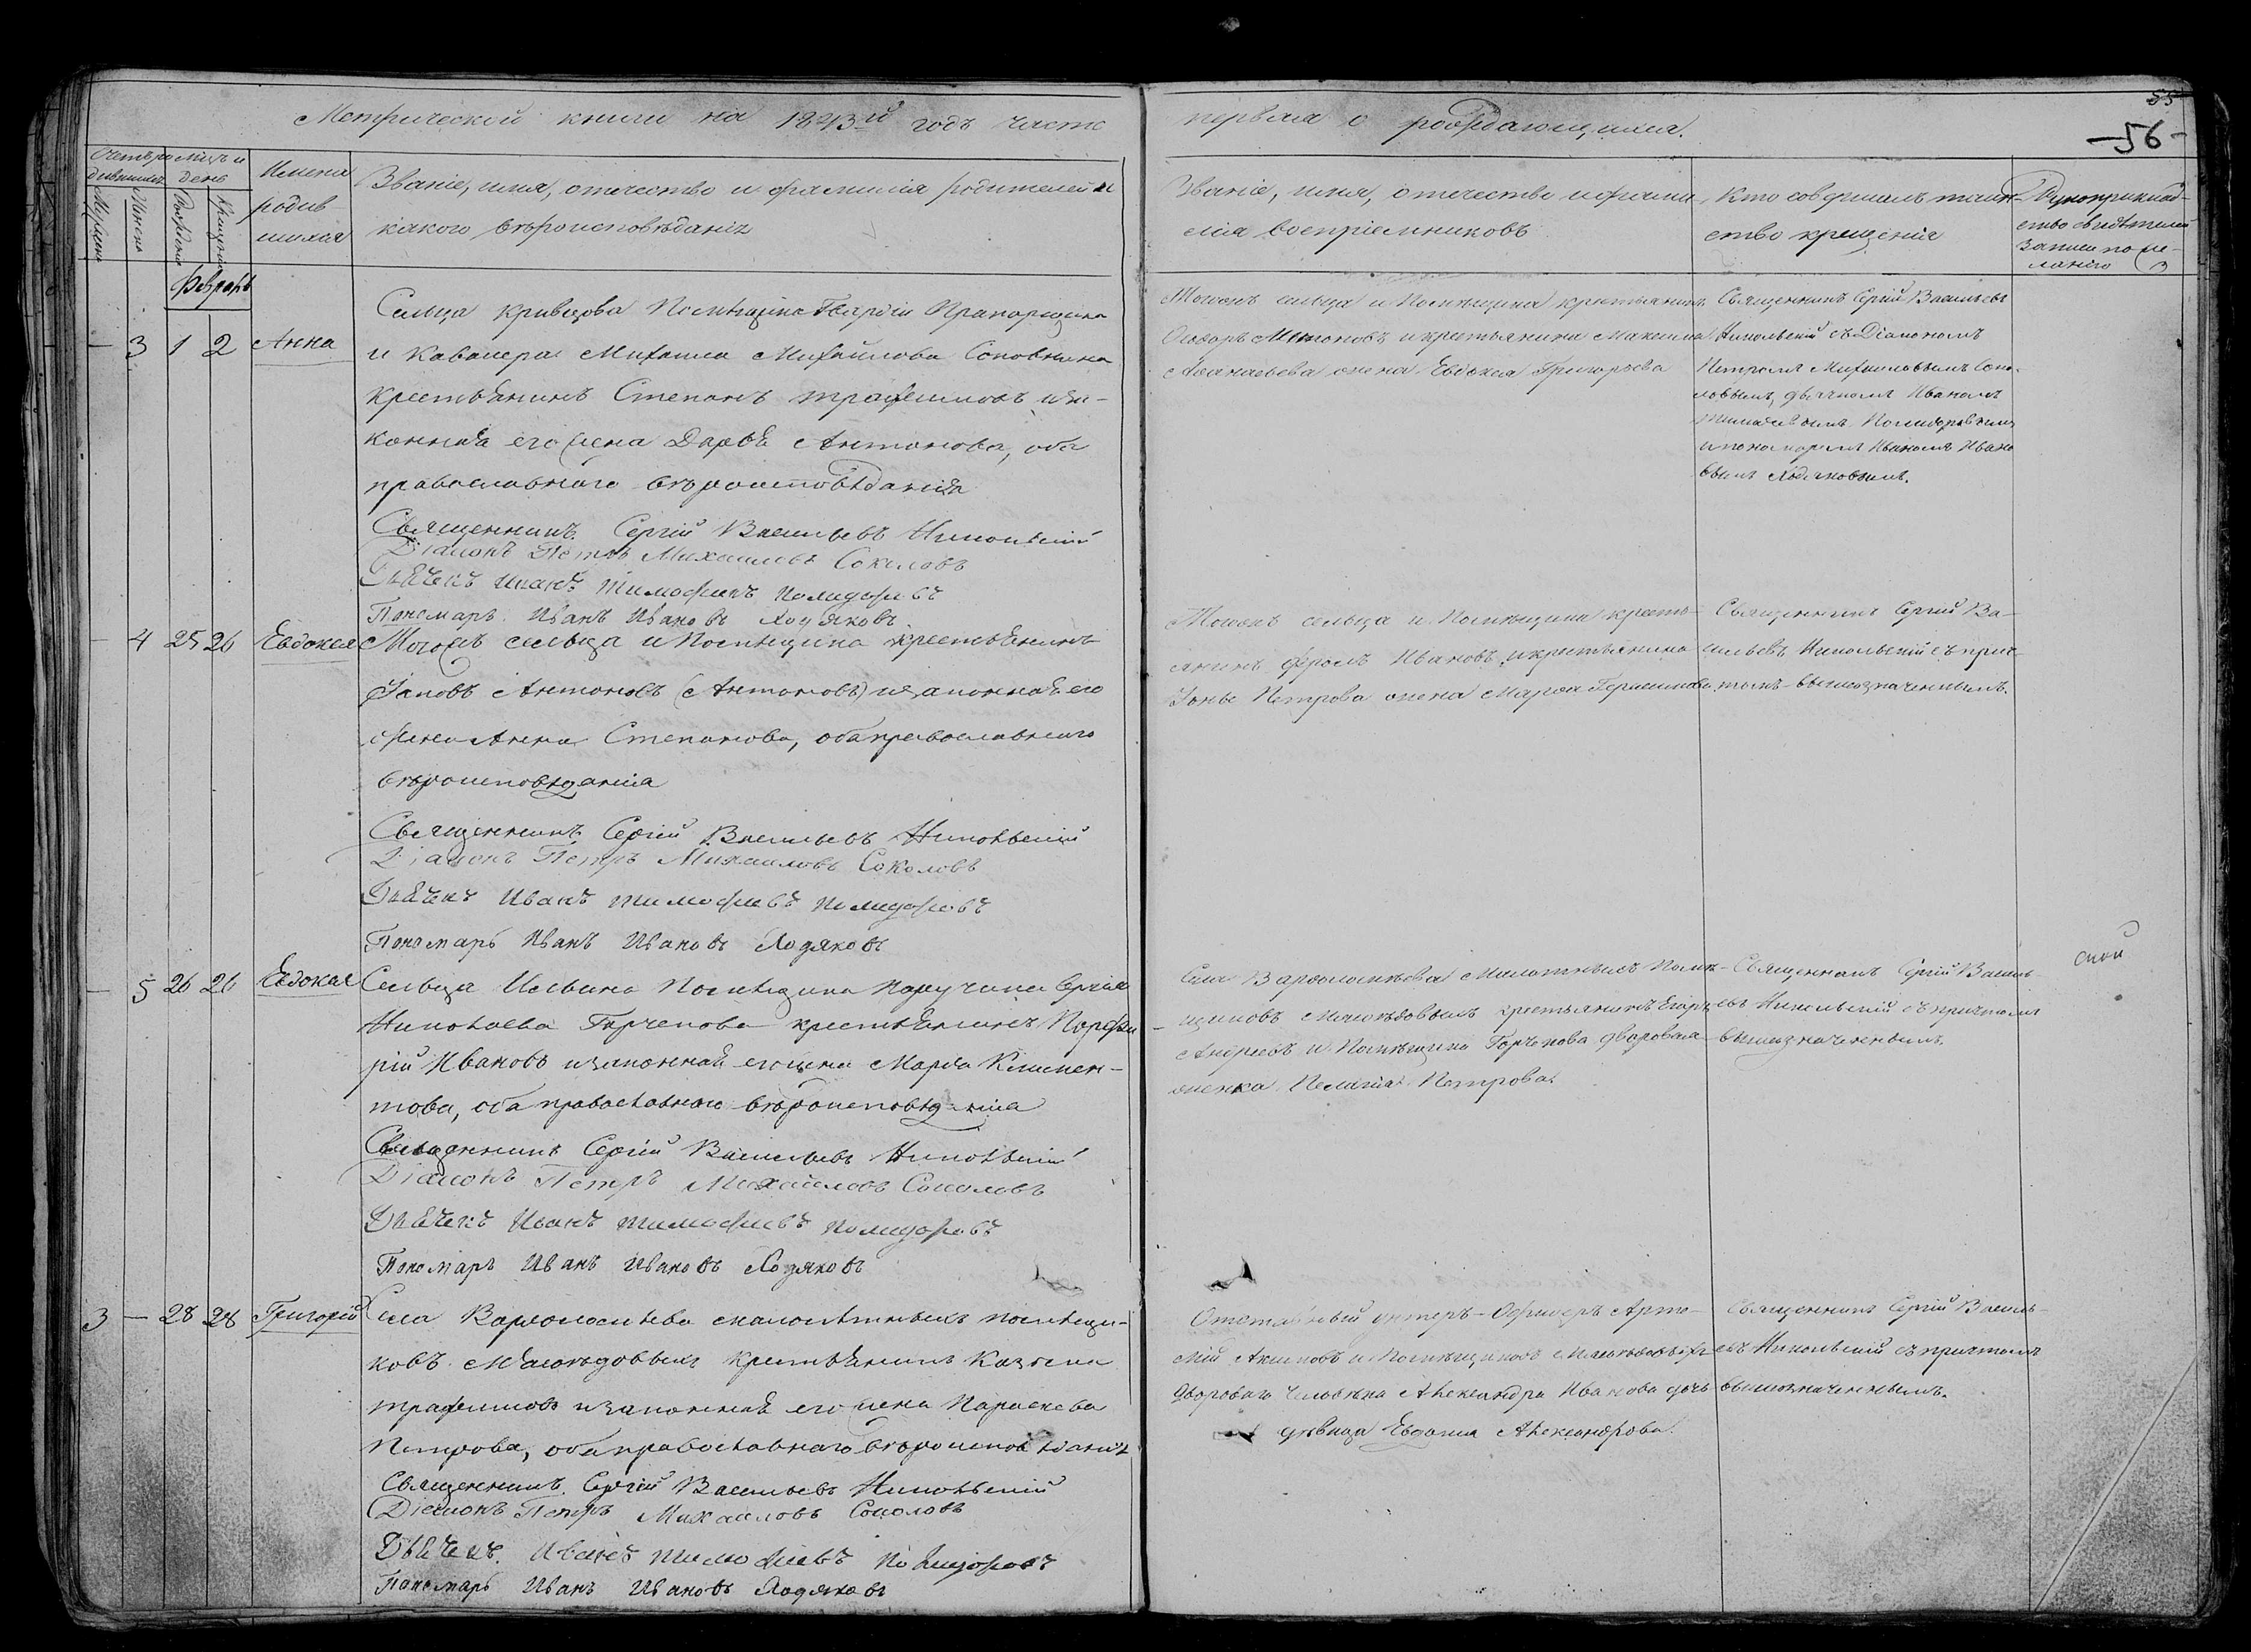 Метрической книги на 1843й годъ часть
первая о рождающихся.
55
-56-
Счетъ ро
дившихъ
Мцъ и
день
Имена
родив
шихся
Званіе, имя, отечество и фамилія родителей и
какого вѣроисповѣданія
Званіе, имя, отечество и фами
лія воспріемниковъ
Кто совершалъ таин-
ство крещенія
Рукоприклад-
ство свидѣтелей
записи по же-
ланію
Рожденія
Крещенія
Февраль
— 3 1 2 Анна
Сельца Кривцова Помѣщика Гвардіи Прапорщика
и Кавалера Михаила Михайлова Соковнина
крестьянинъ Степанъ Трафимовъ иза-
конная его жена Дарья Антонова, оба
православнаго вѣроисповѣданія
Священникъ Сергій Васильевъ Никольскій
Діаконъ Петръ Михаиловъ Соколовъ
Дьячекъ Иванъ Тимофеевъ Полидоровъ
Пономарь Иванъ Ивановъ Ходяковъ
Тогожъ сельца и Помѣщика крестьянинъ
Ѳедоръ Антоновъ и крестьянина Максима
Аѳанасьева жена Евдокея Григорьева
Священникъ Сергій Васильевъ
Никольскій съ Діакономъ
Петромъ Михаиловымъ Соко-
ловымъ, дьячкомъ Иваномъ
Тимофеевымъ Полидоровымъ
и пономаремъ Иваномъ Ивано
вымъ Ходяковымъ.
— 4 25 26 Евдокея
Тогожъ сельца и Помѣщика крестьянинъ
Іаковъ Антоновъ (Антоновъ) изаконная его
жена Анна Степанова, оба православнаго
вѣроисповѣданія
Священникъ Сергій Васильевъ Никольскій
Діаконъ Петръ Михаиловъ Соколовъ
Дьячекъ Иванъ Тимофеевъ Полидоровъ
Пономарь Иванъ Ивановъ Ходяковъ
Тогожъ сельца и Помѣщика кресть-
янинъ Ивановъ и крестьянина
Петрова жена Марѳа
Священникъ Сергій Ва-
сильевъ Никольскій съ прич-
томъ вышеозначеннымъ.
— 5 26 26 Евдокея
Сельца Ильина Помѣщика Поручика Сергія
Николаева Горчакова крестьянинъ Порфи
рій Ивановъ изаконная его жена Марѳа Климен-
това, оба православнаго вѣроисповѣданія
Священникъ Сергій Васильевъ Никольскій
Діаконъ Петръ Михайловъ Соколовъ
Дьячекъ Иванъ Тимофеевъ Полидоровъ
Пономарь Иванъ Ивановъ Ходяковъ
Села Варѳоломѣева Малолѣтныхъ Помѣ-
щиковъ крестьянинъ Егоръ
Андреевъ и Помѣщика Горчакова дворовая
женка Пелагія Петрова.
Священникъ Сергій Василь
евъ Никольскій съ причтомъ
вышеозначеннымъ.
3 — 28 28 Григорій
Села Варѳоломѣева малолѣтныхъ помѣщи-
ковъ крестьянинъ Козьма
Трафимовъ изаконная его жена Параскева
Петрова, оба православнаго вѣроисповѣданія
Священникъ Сергій Васильевъ Никольскій
Діаконъ Петръ Михаиловъ Соколовъ
Дьячекъ Иванъ Тимофеевъ Полидоровъ
Пономарь Иванъ Ивановъ Ходяковъ
Отставный унтеръ-Офицеръ Арте-
мій и Помѣщиковъ
двороваго человѣка Александра Иванова дочь
дѣвица Евдокия Александрова.
Священникъ Сергій Василь-
евъ Никольскій съ причтомъ
вышеозначеннымъ.